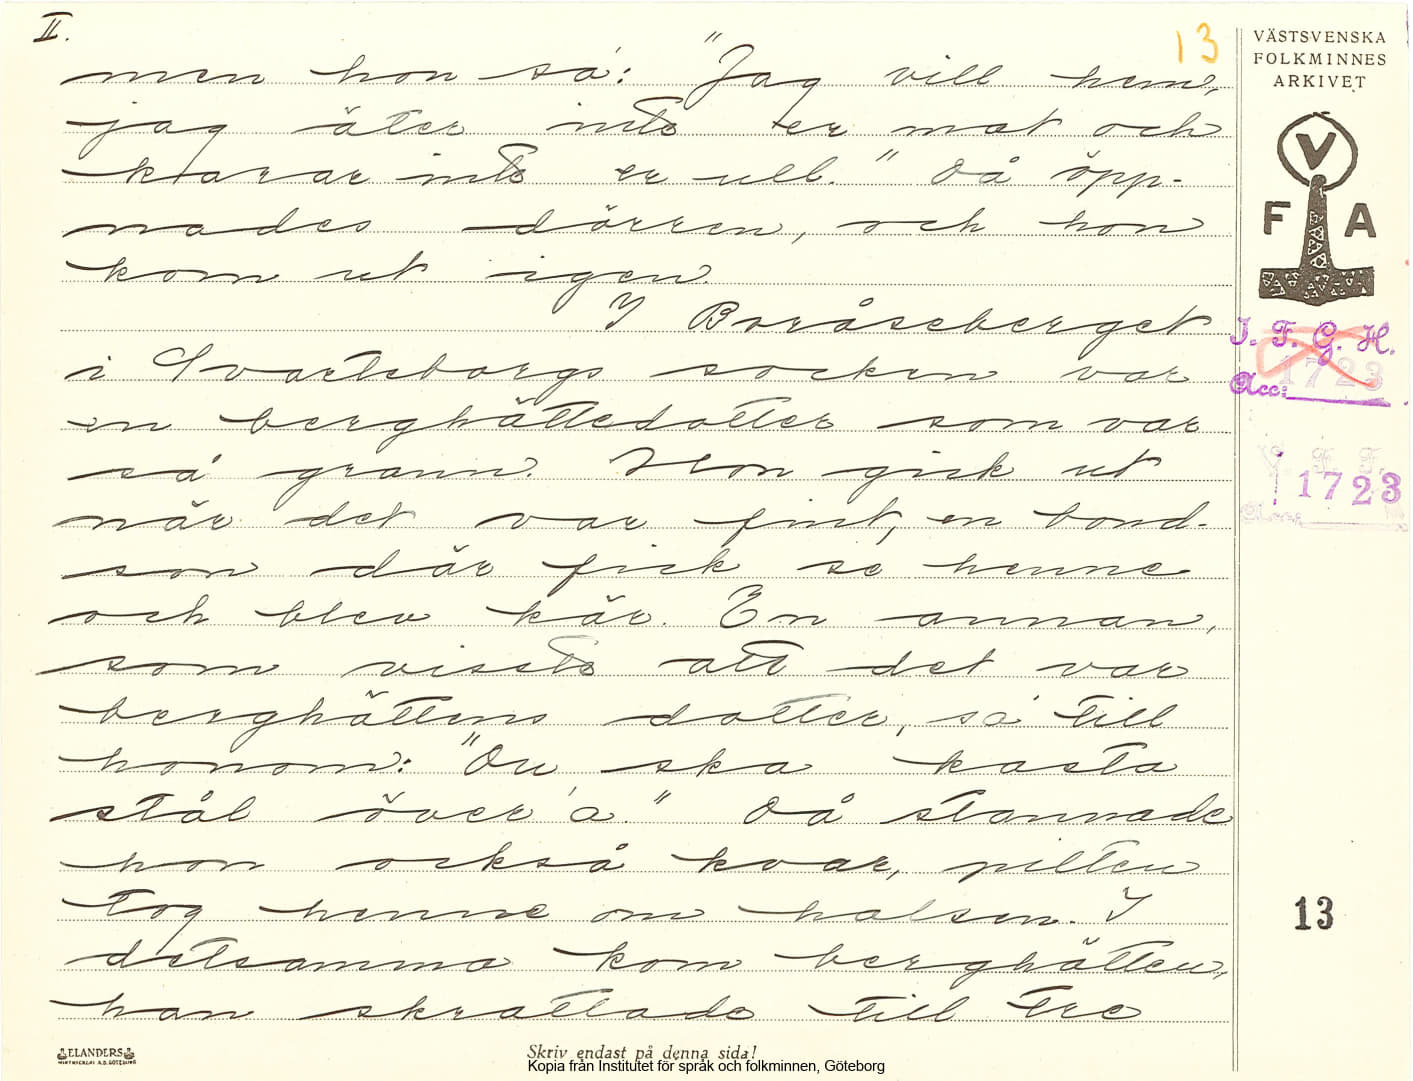 II.
13
VÄSTSVENSKA
FOLKMINNES
ARKIVET
men hon sa': "Jag vill hem,
jag äter inte er mat och
karar inte er ull." Då öpp-
nades dörren, och hon
kom ut igen.
I Boråseberget
i Svarteborgs socken var
en berghättedotter som var
så grann. Hon gick ut
när det var fint, en bond-
son där fick se henne
och blev kär. En annan,
som visste att det var
berghättens dotter, sa' till
honom: "Du ska kasta
stål över 'a." Då stannade
hon också kvar, pilten
tog henne om halsen. I
detsamma kom berghätten,
han skrattade till tre
V
F A
I. F. G. H.
1723
Acc:
V. F. F.
1723
13
ELANDERS
Skriv endast på denna sida!
Kopia från Institutet för språk och folkminnen, Göteborg